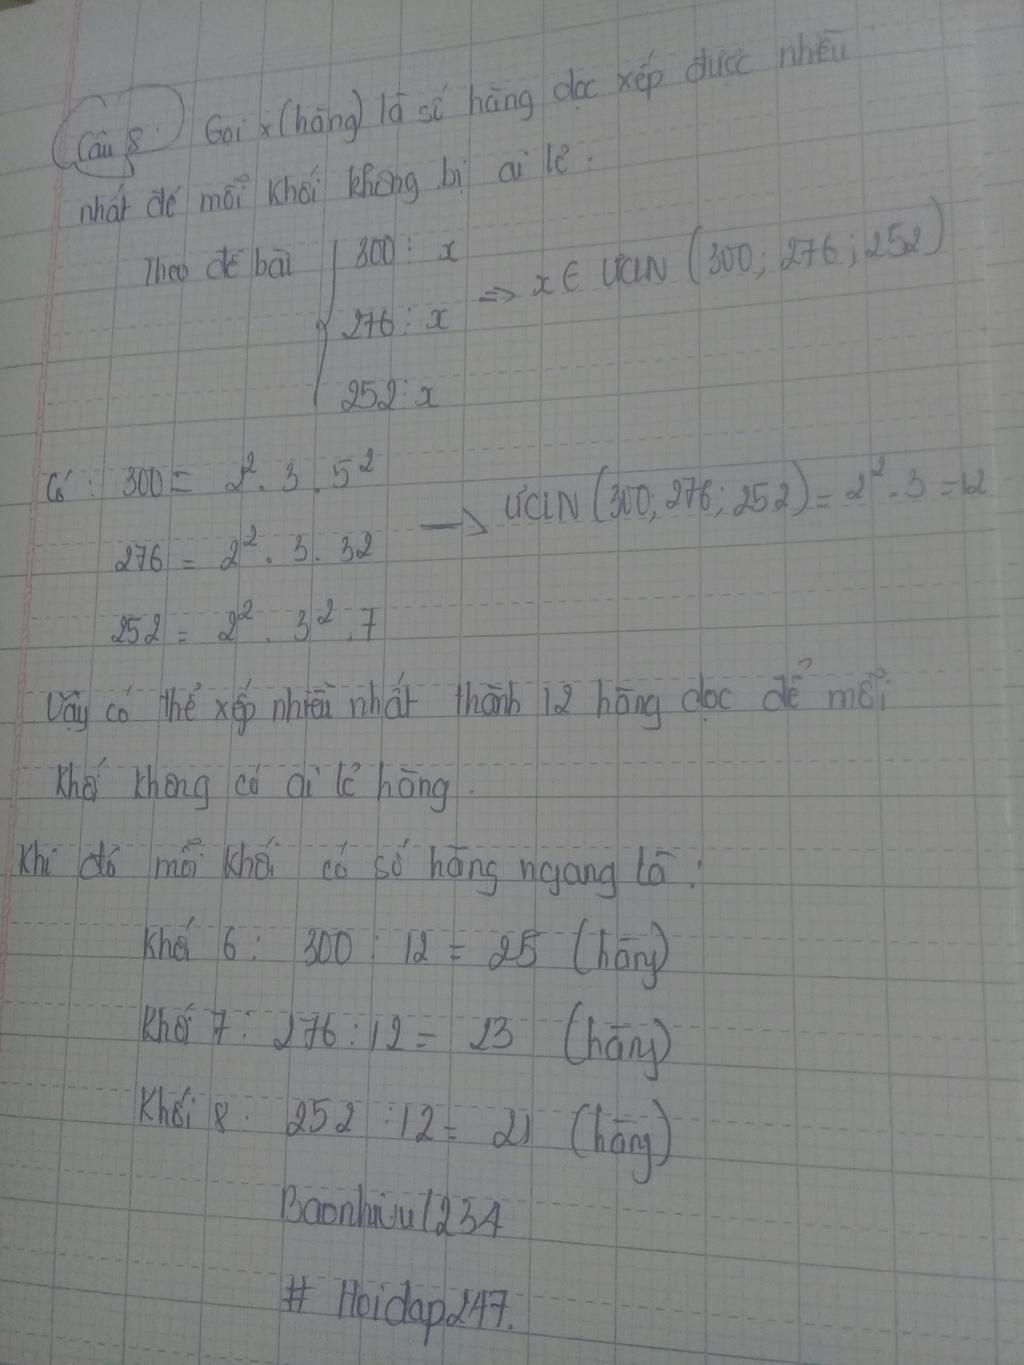 Câu 8: Gọi x (hàng) là số hàng dọc xếp được nhiều
nhất để mỗi khối không bị ai lẻ.
Theo đề bài { 300 : x
276 : x => x ∈ ƯCLN (300; 276; 252)
252 : x
Có : 300 = 2². 3. 5²
276 = 2². 3. 32 → ƯCLN (300; 276; 252) = 2². 3 = 12
252 = 2². 3². 7
Vậy có thể xếp nhiều nhất thành 12 hàng dọc để mỗi
khối không có ai lẻ hàng.
Khi đó mỗi khối có số hàng ngang là :
Khối 6 : 300 : 12 = 25 (hàng)
Khối 7 : 276 : 12 = 23 (hàng)
Khối 8 : 252 : 12 = 21 (hàng)
Baonhiuu1234
# Hoidap247.